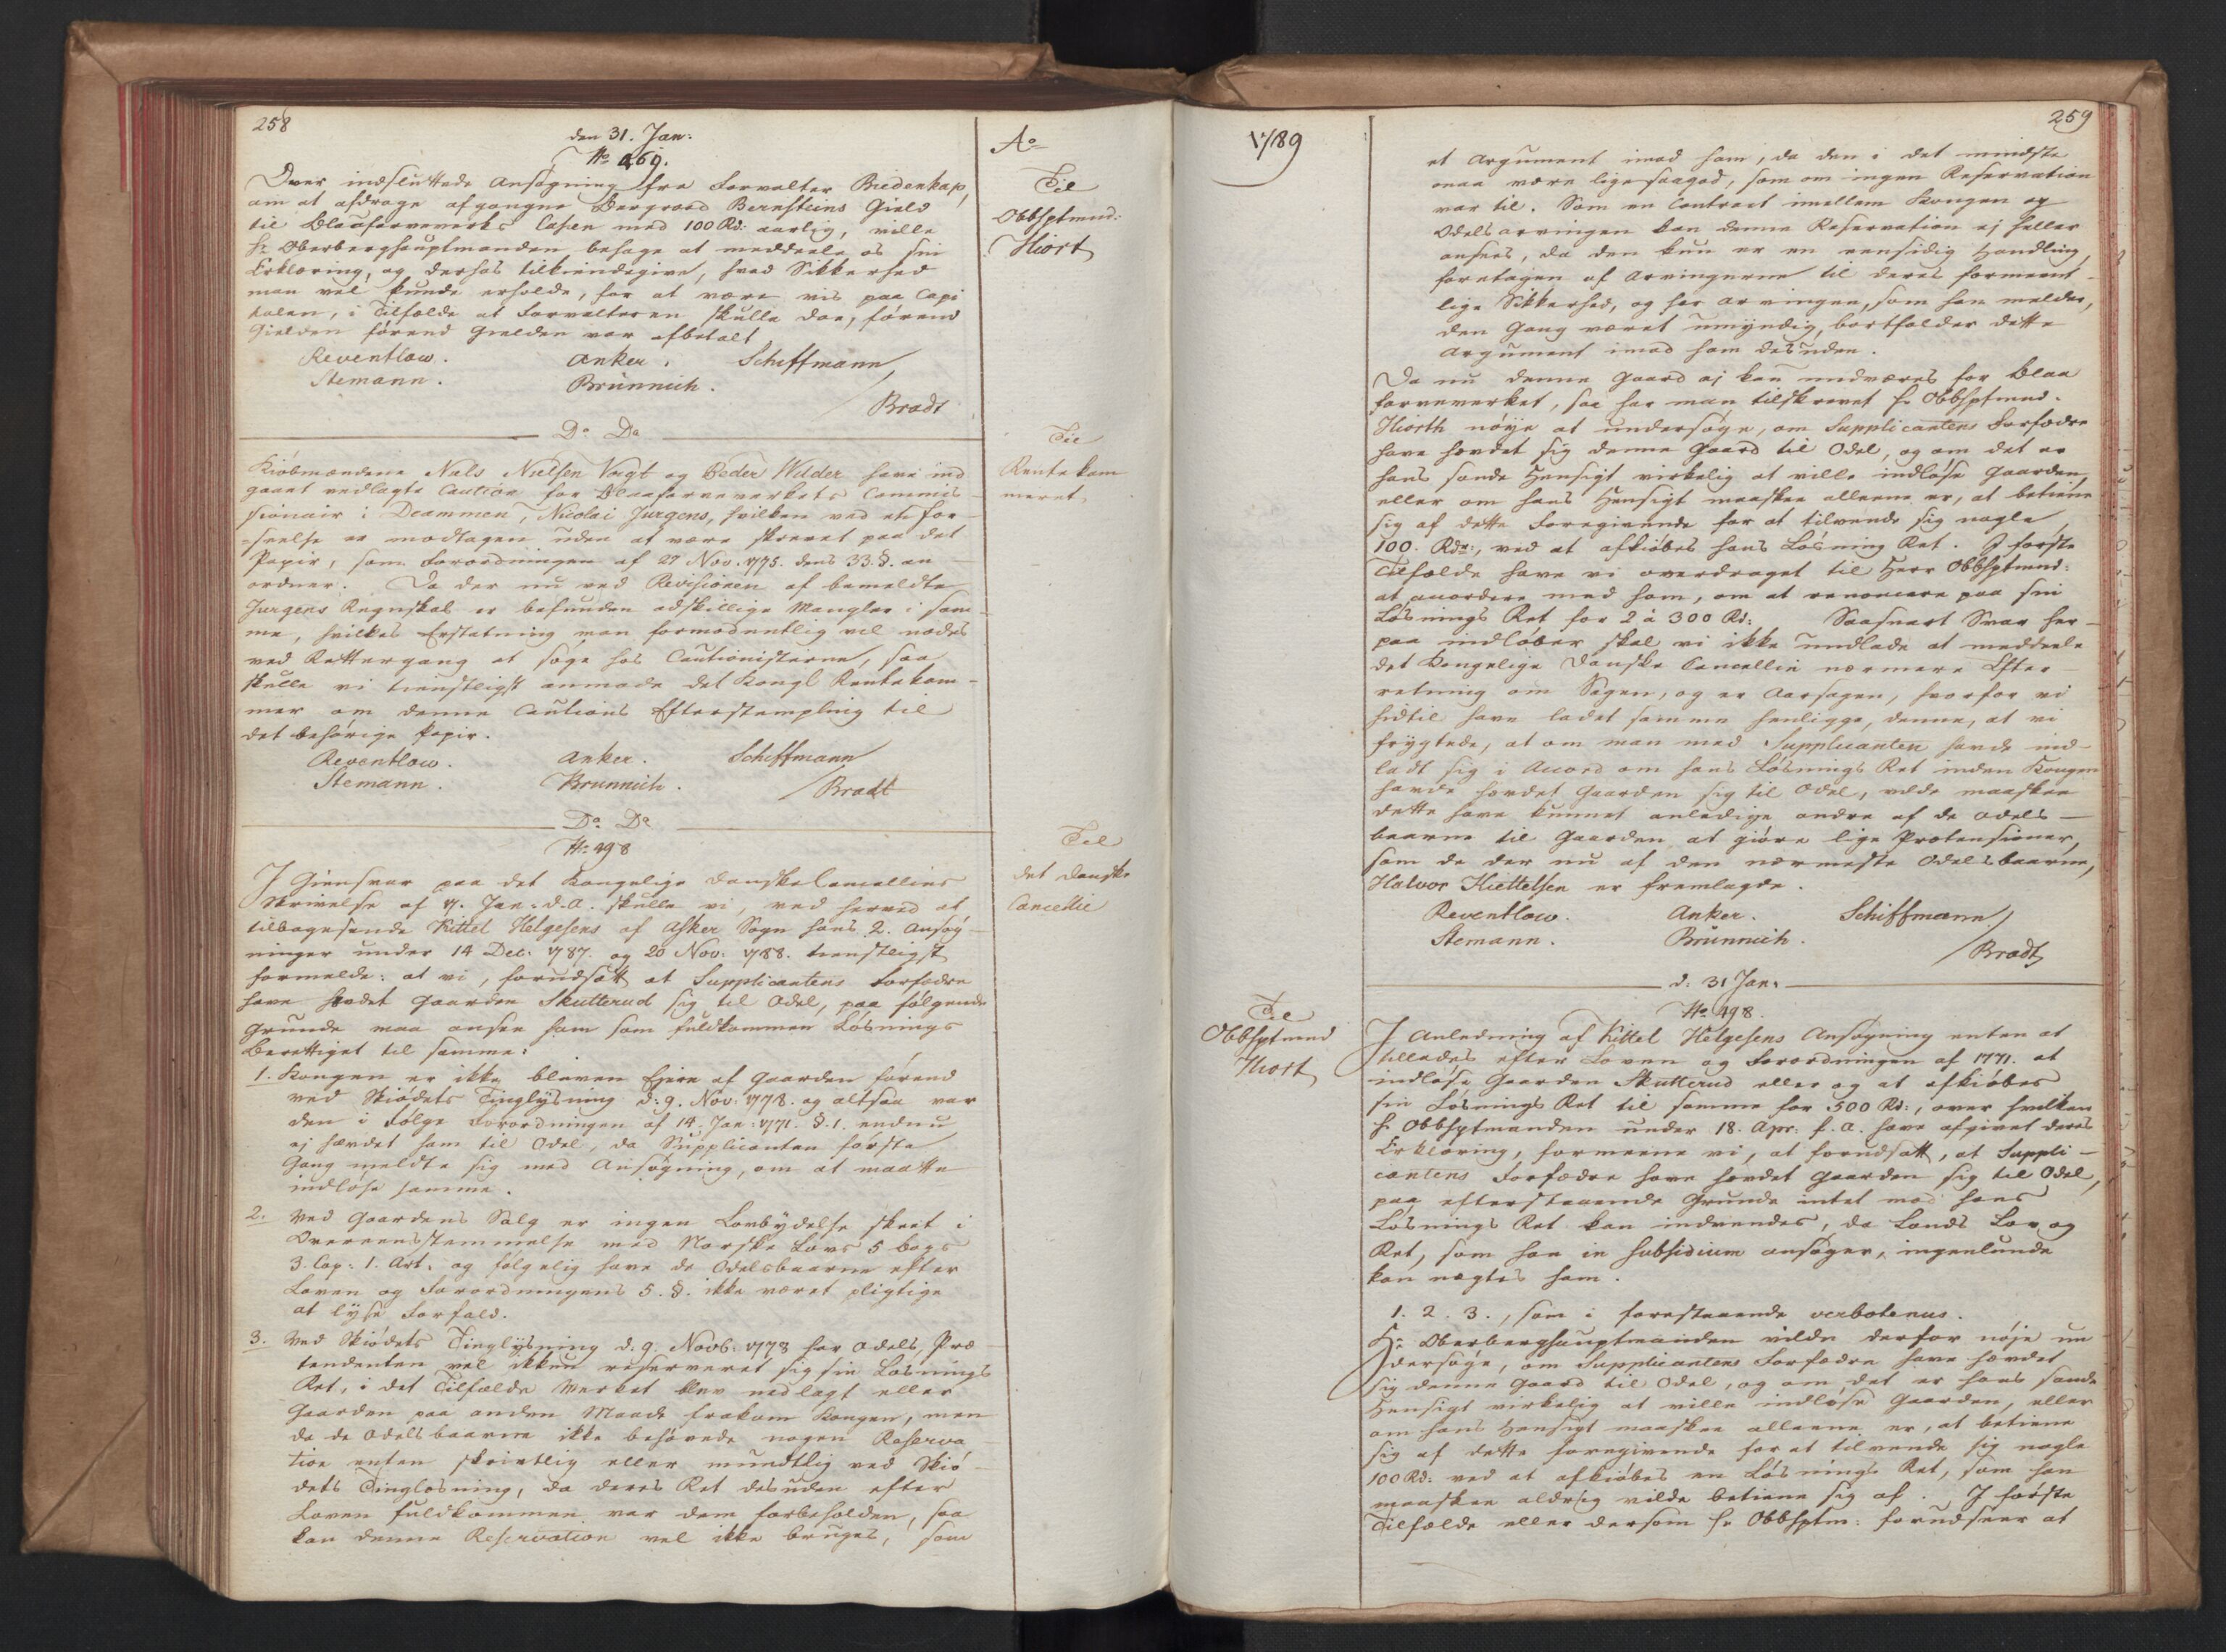 258
den 31. Jan:
No 469.
Over indsluttede Ansøgning fra Forvalter Bredenkap,
om at afdrage afgangne Bergraad Bernsteins Gield
til Blaafarveverks Cassen med 100 Rd: aarlig, ville
Hr Oberberghauptmanden behage at meddeele os sin
Erklæring, og derhos tilkiendegive, hvad Sikkerhed
man vel kunde erholde, for at være vis paa Capi
talen, i Tilfælde at Forvalteren skulle døe, førend
Gielden førend Gielden var afbetalt
Reventlow. Anker. Schiffmann
Stemann. Brünnich.
Bradt
Ao
Til
Obbhptmd:
Hiort
Do Do
Kiøbmændene Niels Nielsen Vogt og Peder Wilder have ind
gaaet vedlagte Caution for Blaafarveverkets Commis-
sionair i Drammen, Nicolai Jurgens, hvilken ved etc for-
-seelse er modtagen uden at være skrevet paa det
Papir, som Forordningen af 27 Nov. 1775. dens 33. §. an-
ordner. Da der nu ved Revisionen af bemeldte
Jurgens Regnskab er befunden adskillige Mangler i sam-
me, hvilkes Erstatning man formodentlig vil nødes
ved Rettergang at søge hos Cautionisterne, saa
skulle vi tienstligst anmode det Kongl Rentekam-
mer om denne Cautions Efterstempling til
det behørige Papir.
Reventlow. Anker. Schiffmann
Stemann. Brunnich. Bradt
Til
Rentekam
meret.
Do Do
No 498
I Giensvar paa det Kongelige Danske Cancellies
Skrivelse af 17. Jan: d. A. skulle vi, ved herved at
tilbagesende Kittel Helgesens af Asker Sogn hans 2. Ansøg-
ninger under 14 Dec: 1787. og 20 Nov: 1788. tienstligst
formelde: at vi, forudsatt at Supplicantens Forfædre
have hævdet Gaarden Skutterud sig til Odel, paa følgende
Grunde maa ansee ham som fuldkommen Løsnings
Berettiget til samme:
1. Kongen er ikke bleven Eiere af Gaarden førend
ved Skiødets Tinglysning d: 9. Nov: 1778. og altsaa var
den i Følge Forordningen af 14. Jan: 1771. §. 1. endnu
ej hævdet ham til Odel, da Supplicanten første
Gang meldte sig med Ansøgning, om at maatte
indløse samme.
2. Ved Gaardens Salg er ingen Lovbydelse skeet i
Overeensstemmelse med Norske Lovs 5 bogs
3. Cap: 1. Art. og følgelig have de Odelsbaarne efter
Loven og Forordningens 5. §. ikke været pligtige
at lyse Forfald.
3. Ved Skiødets Tinglysning d. 9. Novb: 1778 har Odels Præ-
tendenten vel ikkun reserveret sig sin Løsnings
Ret, i det Tilfælde Verket blev nedlagt eller
Gaarden paa anden Maade frakom Kongen, men
da de Odelsbaarne ikke behøvede nogen Reserva-
tion enten skrivtlig eller mundtlig ved Skiø-
dets Tinglæsning, da deres Ret desuden efter
Loven fuldkommen var dem forbeholden, saa
kan denne Reservation vel ikke bruges, som
Til
det Danske
Cancellie
1789
259
et Argument imod ham, da den i det mindste
maa være lige saagod, som om ingen Reservation
var til. Som en Contract imellem Kongen og
Odelsarvingen kan denne Reservation ej heller
ansees, da den kun er en eensidig Handling,
foretagen af Arvingerne til deres formeent-
lige Sikkerhed, og har Arvingen, som han melder,
den Gang været umyndig, bortfalder dette
Argument imod ham desuden.
Da nu denne Gaard ej kan undværes for Blaa
farveverket, saa har man tilskrevet Hr Obbhptmd.
Hiorth nøye at undersøge, om Supplicantens Forfædre
have hævdet sig denne Gaard til Odel, og om det er
hans sande Hensigt virkelig at ville indløse Gaarden,
eller om hans Hensigt maaskee alleene er, at betiene
sig af dette Foregivende for at tilvende sig nogle
100. Rdr:, ved at afkiøbes hans Løsning Ret. I første
Tilfælde have vi overdraget til Herr Obbhptmd:
at accordere med ham, om at renoncere paa sin
Løsnings Ret for 2 à 300 Rd: Saasnart Svar her-
paa indløber skal vi ikke undlade at meddeele
det Kongelige Danske Cancellie nærmere Efter-
retning om Sagen, og er Aarsagen, hvorfor vi
hidtil have ladet samme henligge, denne, at vi
frygtede, at om man med Supplicanten havde ind-
ladt sig i Accord om hans Løsnings Ret inden Kongen
havde hævdet Gaarden sig til Odel, vilde maaskee
dette have kunnet anledige andre af de Odels-
baarne til Gaarden at giøre lige Prætensioner,
som de der nu af den nærmeste Odelsbaarne,
Halvor Kiettelsen er fremlagde.
Reventlow. Anker. Schiffmann
Stemann. Brünnich.
Bradt
d: 31 Jan:
No 498.
Til
Obbhptmd
Hiort
I Anledning af Kittel Helgesens Ansøgning enten at
tillades efter Loven og Forordningen af 1771. at
indløse Gaarden Skutterud eller og at afkiøbes
sin Løsnings Ret til samme for 500 Rd:, over hvilken
Hr Obbhptmanden under 18. Apr: f. A. have afgivet deres
Erklæring, formeene vi, at forudsatt, at Suppli-
cantens Forfædre have hævdet Gaarden sig til Odel,
paa efterstaaende Grunde intet mod hans
Løsnings Ret kan indvendes, da Lands Lov og
Ret, som han in subsidium ansøger, ingenlunde
kan nægtes ham.
1. 2. 3., som i forestaaende verbotenus.
Hr Oberberghauptmanden vilde derfor nøje un
dersøge, om Supplicantens Forfædre have hævdet
sig denne Gaard til Odel, og om det er hans sande
Hensigt virkelig at ville indløse Gaarden, eller
om hans Hensigt maaskee alleene er, at betiene
sig af dette foregivende for at tilvende sig nogle
100 Rd: ved at afkiøbes en Løsnings Ret, som han
maaskee aldrig vilde betiene sig af. I første
Tilfælde eller dersom Hr Obbhptm: forudseer at